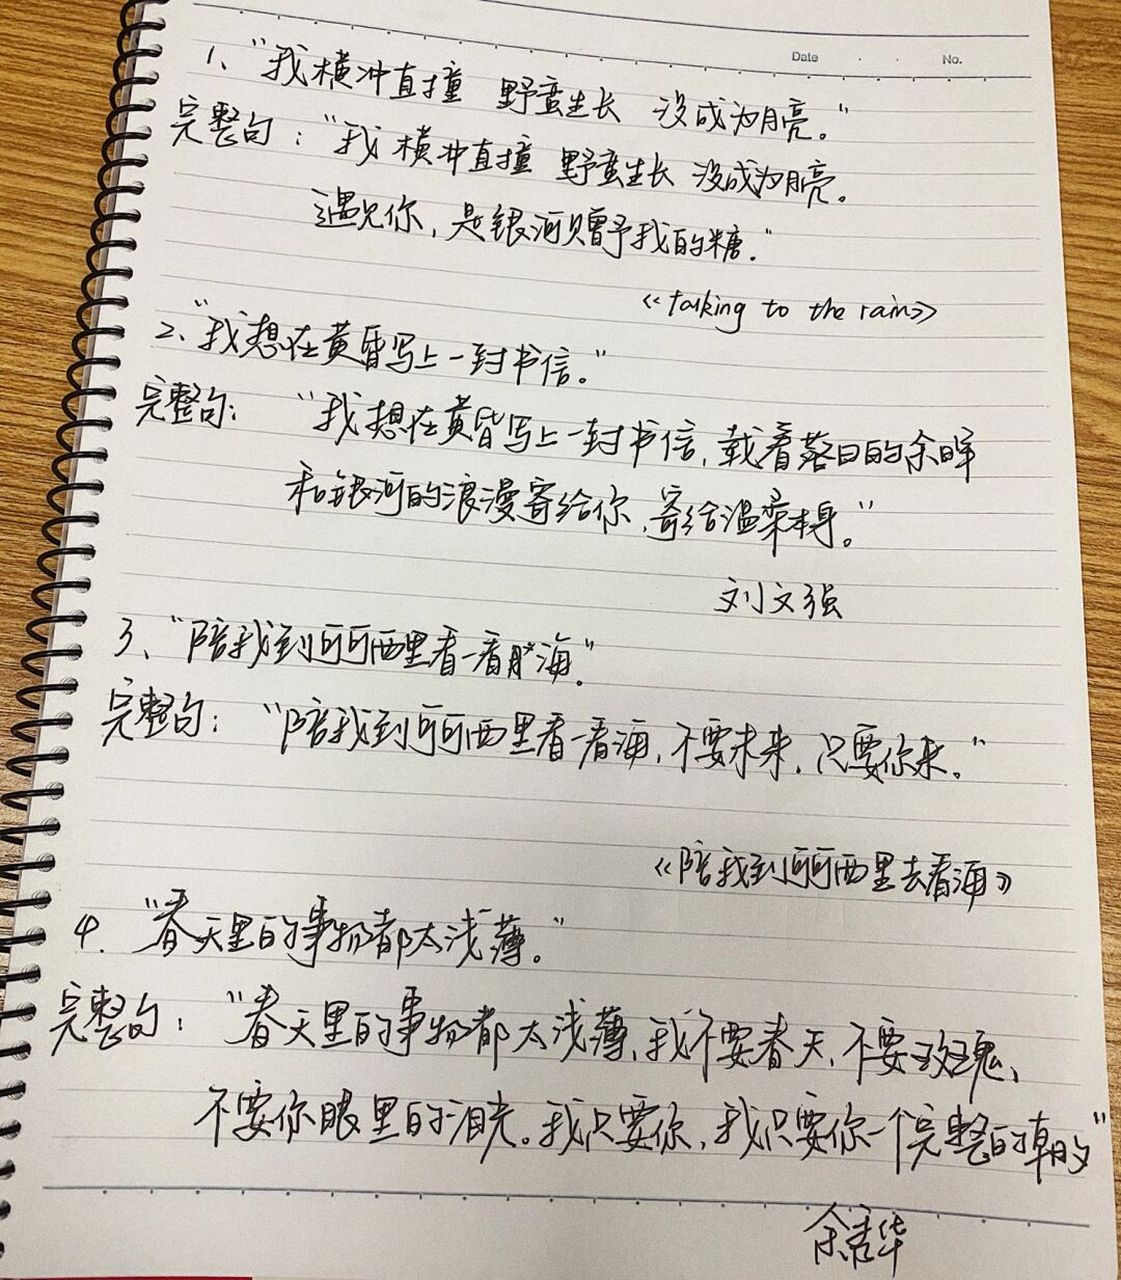 Date No.
1、“我横冲直撞 野蛮生长 没成为月亮。”
完整句：“我横冲直撞 野蛮生长 没成为月亮。
遇见你，是银河赠予我的糖.”
《talking to the rain》
2、“我想在黄昏写上一封书信。”
完整句：“我想在黄昏写上一封书信，载着落日的余晖
和银河的浪漫寄给你，寄给温柔本身。”
刘文强
3、“陪我到可可西里看一看海”.
完整句：“陪我到可可西里看一看海，不要未来，只要你来。”
《陪我到可可西里去看海》
4.“春天里的事物都太浅薄。”
完整句：“春天里的事物都太浅薄，我不要春天，不要玫瑰、
不要你眼里的泪光。我只要你，我只要你一个完整的
余秀华